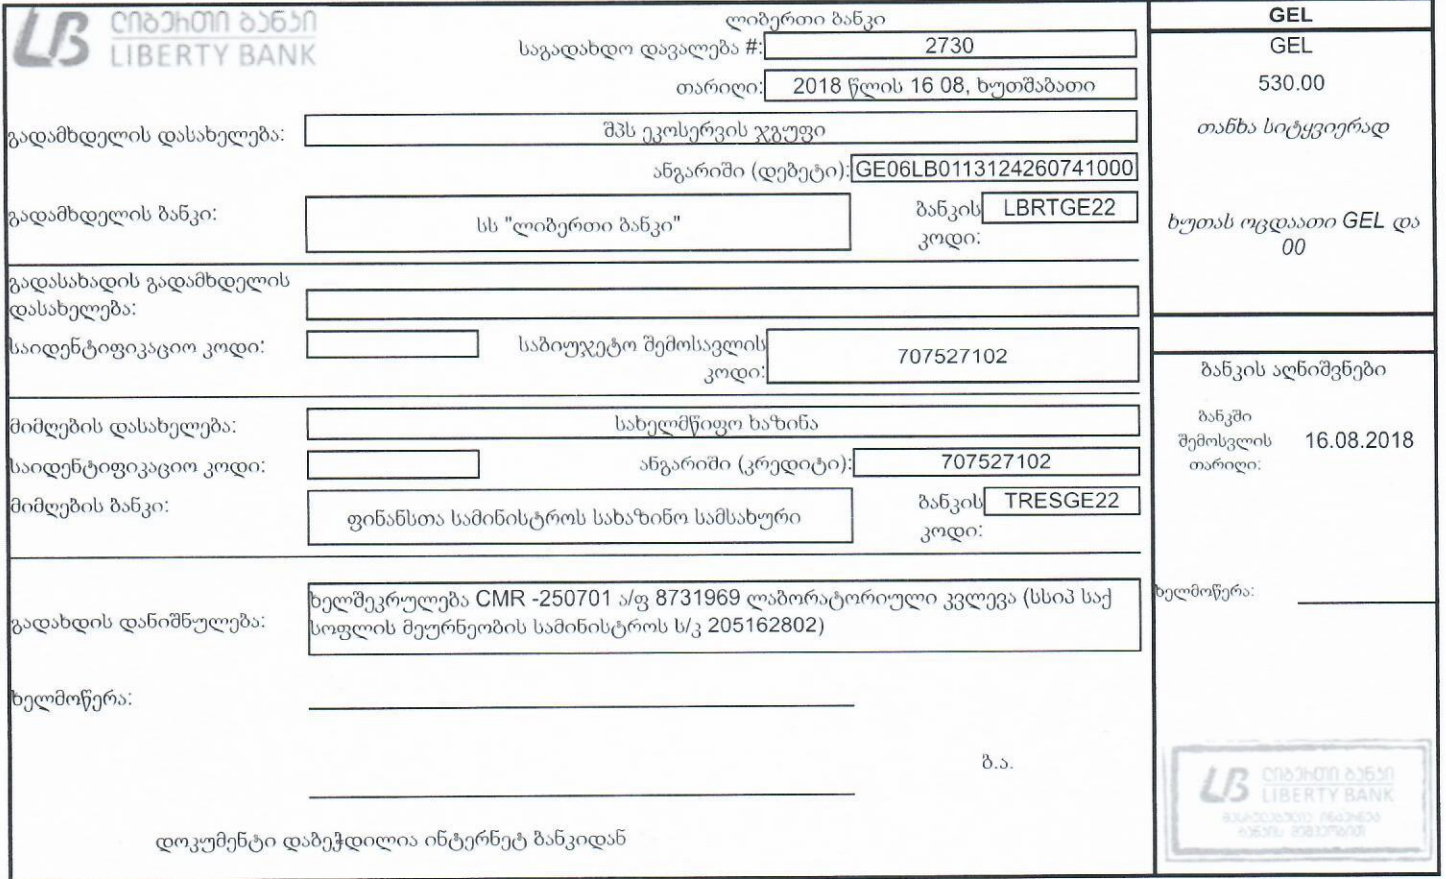 ლიბერთი ბანკი
LIBERTY BANK
ლიბერთი ბანკი
საგადახდო დავალება #: 2730
თარიღი: 2018 წლის 16 08, ხუთშაბათი
გადამხდელის დასახელება: შპს ეკოსერვის ჯგუფი
ანგარიში (დებეტი): GE06LB0113124260741000
გადამხდელის ბანკი: სს "ლიბერთი ბანკი" ბანკის კოდი: LBRTGE22
გადასახადის გადამხდელის
დასახელება:
საიდენტიფიკაციო კოდი: საბიუჯეტო შემოსავლის
კოდი: 707527102
მიმღების დასახელება: სახელმწიფო ხაზინა
საიდენტიფიკაციო კოდი: ანგარიში (კრედიტი): 707527102
მიმღების ბანკი: ფინანსთა სამინისტროს სახაზინო სამსახური ბანკის კოდი: TRESGE22
გადახდის დანიშნულება: ხელშეკრულება CMR -250701 ა/ფ 8731969 ლაბორატორიული კვლევა (სსიპ საქ
სოფლის მეურნეობის სამინისტროს ს/კ 205162802)
ხელმოწერა:
ბ.ა.
დოკუმენტი დაბეჭდილია ინტერნეტ ბანკიდან
GEL
GEL
530.00
თანხა სიტყვიერად
ხუთას ოცდაათი GEL და
00
ბანკის აღნიშვნები
ბანკში
შემოსვლის 16.08.2018
თარიღი:
ხელმოწერა:
ლიბერთი ბანკი
LIBERTY BANK